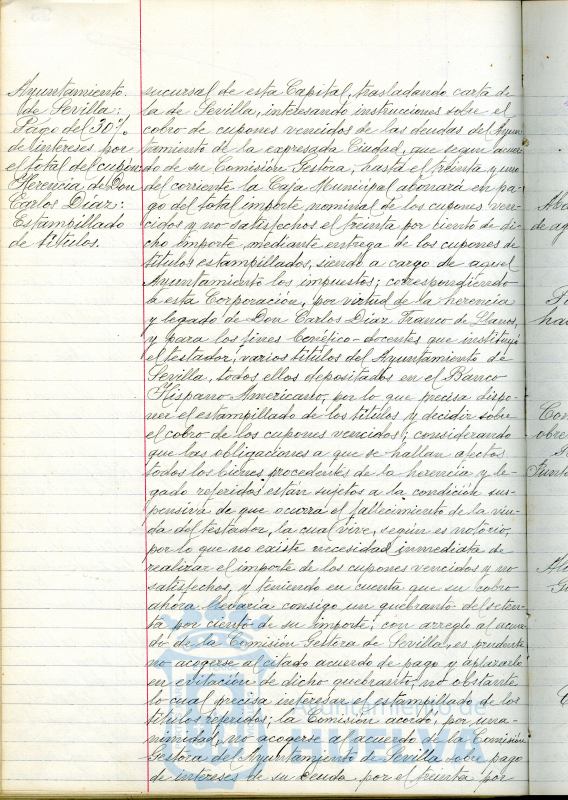 Ayuntamiento
de Sevilla:
Pago del 30%
de intereses por
el total del cupón
Herencia de Don
Carlos Diaz:
Estampillado
de títulos.
sucursal de esta Capital, trasladando carta de
la de Sevilla, interesando instrucciones sobre el
cobro de cupones vencidos de las deudas del Ayun-
tamiento de la expresada Ciudad, que segun acuer-
do de su Comisión Gestora, hasta el treinta y uno
del corriente la Caja Municipal abonará en pa-
go del total importe nominal de los cupones ven-
cidos y no satisfechos el treinta por ciento de di-
cho importe, mediante entrega de los cupones de
títulos estampillados, siendo a cargo de aquel
Ayuntamiento los impuestos; correspondiendo
a esta Corporación, por virtud de la herencia
y legado de Don Carlos Diaz Franco de Llanos,
y para los fines benéfico-docentes que instituyó
el testador, varios títulos del Ayuntamiento de
Sevilla, todos ellos depositados en el Banco
Hispano Americano, por lo que precisa dispo-
ner el estampillado de los títulos y decidir sobre
el cobro de los cupones vencidos; considerando
que las obligaciones a que se hallan afectos
todos los bienes procedentes de la herencia y le-
gado referidos están sujetos a la condición sus-
pensiva de que ocurra el fallecimiento de la viu-
da del testador, la cual vive, según es notorio,
por lo que no existe necesidad inmediata de
realizar el importe de los cupones vencidos y no
satisfechos, y teniendo en cuenta que su cobro
ahora llevaria consigo un quebranto del seten-
ta por ciento de su importe, con arreglo al acuer-
do de la Comisión Gestora de Sevilla, es prudente
no acogerse al citado acuerdo de pago y aplazarlo
en evitación de dicho quebranto; no obstante
lo cual precisa interesar el estampillado de los
títulos referidos; la Comisión acordó, por una-
nimidad, no acogerse al acuerdo de la Comisión
Gestora del Ayuntamiento de Sevilla sobre pago
de intereses de su Deuda por el treinta por
Ayuntamiento de
HUELVA
de ag
ha
Con
obre